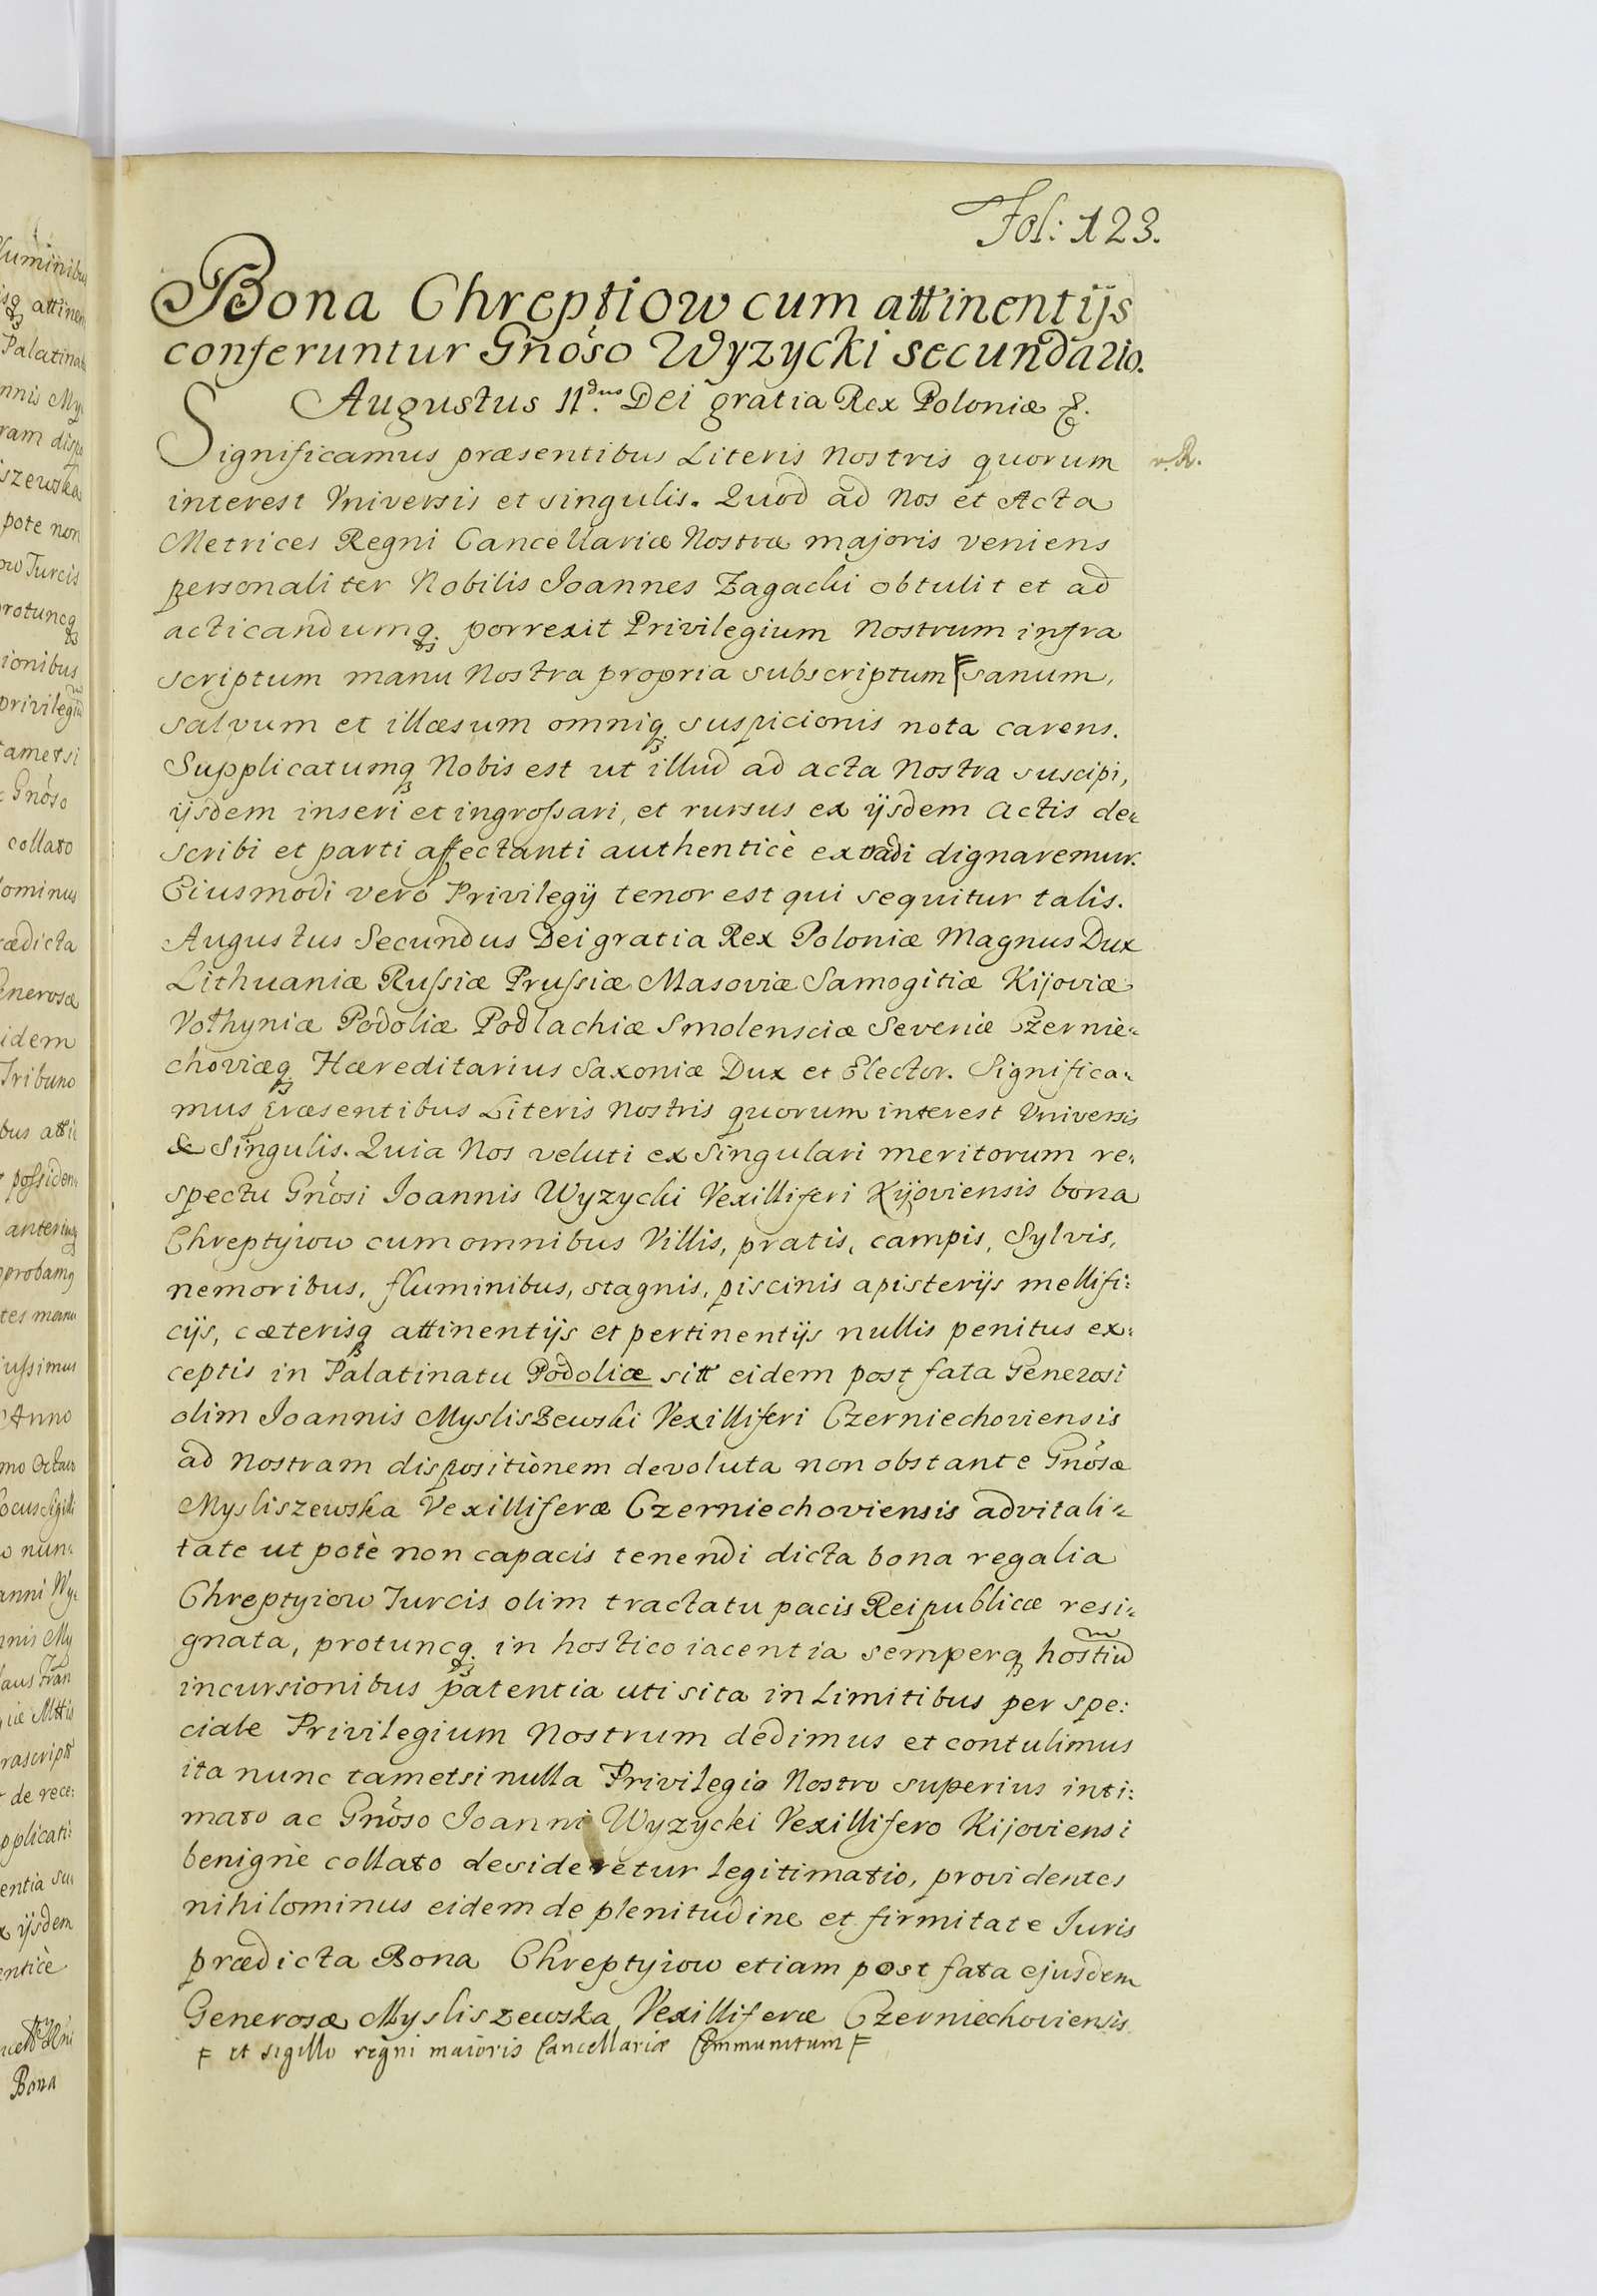 Fol: 123.
Bona Chreptiow cum attinentijs
conferuntur Gnoso Wyzycki secundario.
Augustus IIdus Dei gratia Rex Poloniæ &.
Significamus præsentibus Literis Nostris quorum
interest Vniversis et singulis. Quod ad Nos et Acta
Metrices Regni Cancellariæ Nostræ majoris veniens
personaliter Nobilis Joannes Zagacki obtulit et ad
acticandumq. porrexit Privilegium Nostrum infra
scriptum manu Nostra propria subscriptum F sanum,
salvum et illæsum omniq suspicionis nota carens.
Supplicatumq Nobis est ut illud ad acta Nostra suscipi,
ijsdem inseri et ingrossari, et rursus ex ijsdem Actis de=
scribi et parti affectanti authenticè extradi dignaremur.
Eiusmodi verò Privilegij tenor est qui sequitur talis.
Augustus Secundus Dei gratia Rex Poloniæ Magnus Dux
Lithuaniæ Russiæ Prussiæ Masoviæ Samogitiæ Kijoviæ
Volhyniæ Podoliæ Podlachiæ Smolensciæ Severiæ Czernie=
choviæq Hæreditarius Saxoniæ Dux et Elector. Significa=
mus præsentibus Literis Nostris quorum interest Vniversis
& Singulis. Quia Nos veluti ex Singulari meritorum re=
spectu Gnosi Joannis Wyzycki Vexilliferi Kijoviensis bona
Chreptyiow cum omnibus Villis, pratis, campis, Sylvis,
nemoribus, fluminibus, stagnis, piscinis apisterijs mellifi=
cijs, cæterisq attinentijs et pertinentijs nullis penitus ex=
ceptis in Palatinatu Podoliæ sitt eidem post fata Generosi
olim Joannis Mysliszewski Vexilliferi Czerniechoviensis
ad nostram dispositionem devoluta non obstante Gnosæ
Mysliszewska Vexilliferæ Czerniechoviensis advitali=
tate ut potè non capacis tenendi dicta bona regalia
Chreptyiow Turcis olim tractatu pacis Reipublicæ resi=
gnata, protuncq. in hostico iacentia semperq hostiu
incursionibus patentia uti sita in Limitibus per spe=
ciale Privilegium Nostrum dedimus et contulimus
ita nunc tametsi nulla Privilegio Nostro superius inti=
mato ac Gnoso Joanni Wyzycki Vexillifero Kijoviensi
benignè collato desideretur legitimatio, providentes
nihilominus eidem de plenitudine et firmitate Juris
prædicta Bona Chreptyiow etiam post fata ejusdem
Generosæ Mysliszewska Vexilliferæ Czerniechoviensis
F et sigillo regni maioris Cancellariæ Communitum F